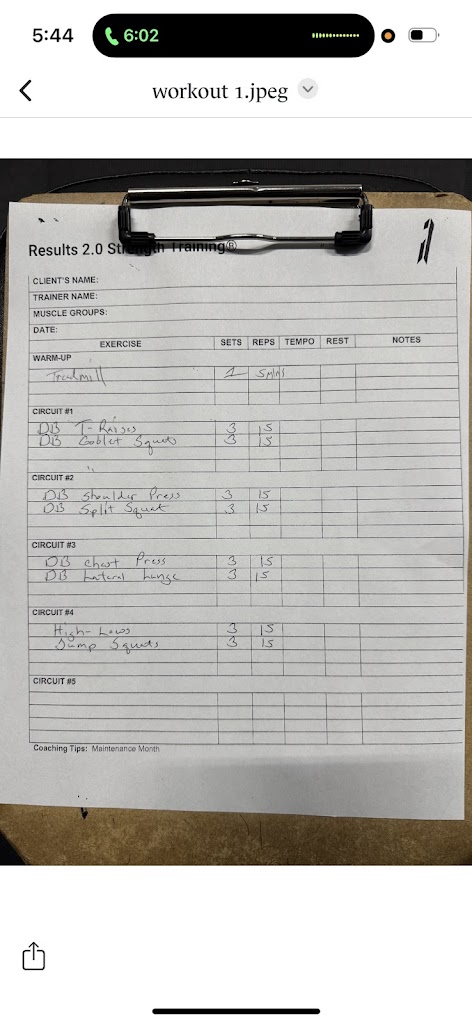 5:44
6:02
workout 1.jpeg
Results 2.0 Strength Training®
CLIENT'S NAME:
TRAINER NAME:
MUSCLE GROUPS:
DATE:
EXERCISE SETS REPS TEMPO REST NOTES
WARM-UP
Treadmill 1 5mins
CIRCUIT #1
DB T-Raises 3 15
DB Goblet Squats 3 15
CIRCUIT #2
DB Shoulder Press 3 15
DB Split Squat 3 15
CIRCUIT #3
DB Chest Press 3 15
DB Lateral Lunge 3 15
CIRCUIT #4
High-Lows 3 15
Jump Squats 3 15
CIRCUIT #5
Coaching Tips: Maintenance Month